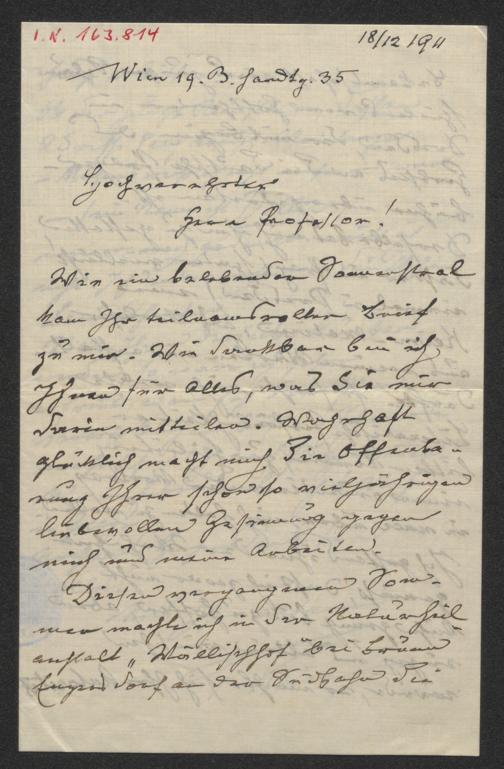 I. N. 163.814
18/12 1911
Wien 19. B. Hardtg. 35
Hochverehrter
Herr Professor!
Wie ein belebender Sonnenstral
kam Ihr teilnamsvoller Brief
zu mir. Wie dankbar bin ich
Ihnen für Alles, was Sie mir
darin mitteilen. Wahrhaft
glücklich macht mich Die Offenba-
rung Ihrer schon so vieljährigen
liebevollen Gesinnung gegen
mich und meine Arbeiten.
Diesen vergangenen Som-
mer machte ich in der Naturheil
anstalt „Wällischhof" bei Brunn
Enzersdorf an der Südbahn die